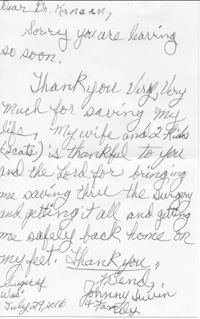 Dear Dr. Kanaan,
Sorry you are leaving
so soon.
Thank you Very, Very
much for saving my
life, My wife and 2 Kids
(Scats) is thankful to you
and the Lord for bringing
me saving thru the surgery
and getting it all and getting
me safely back home on
my feet. Thank you,
Surgery Friend,
Was Johnny
July 29, 2016 + Family